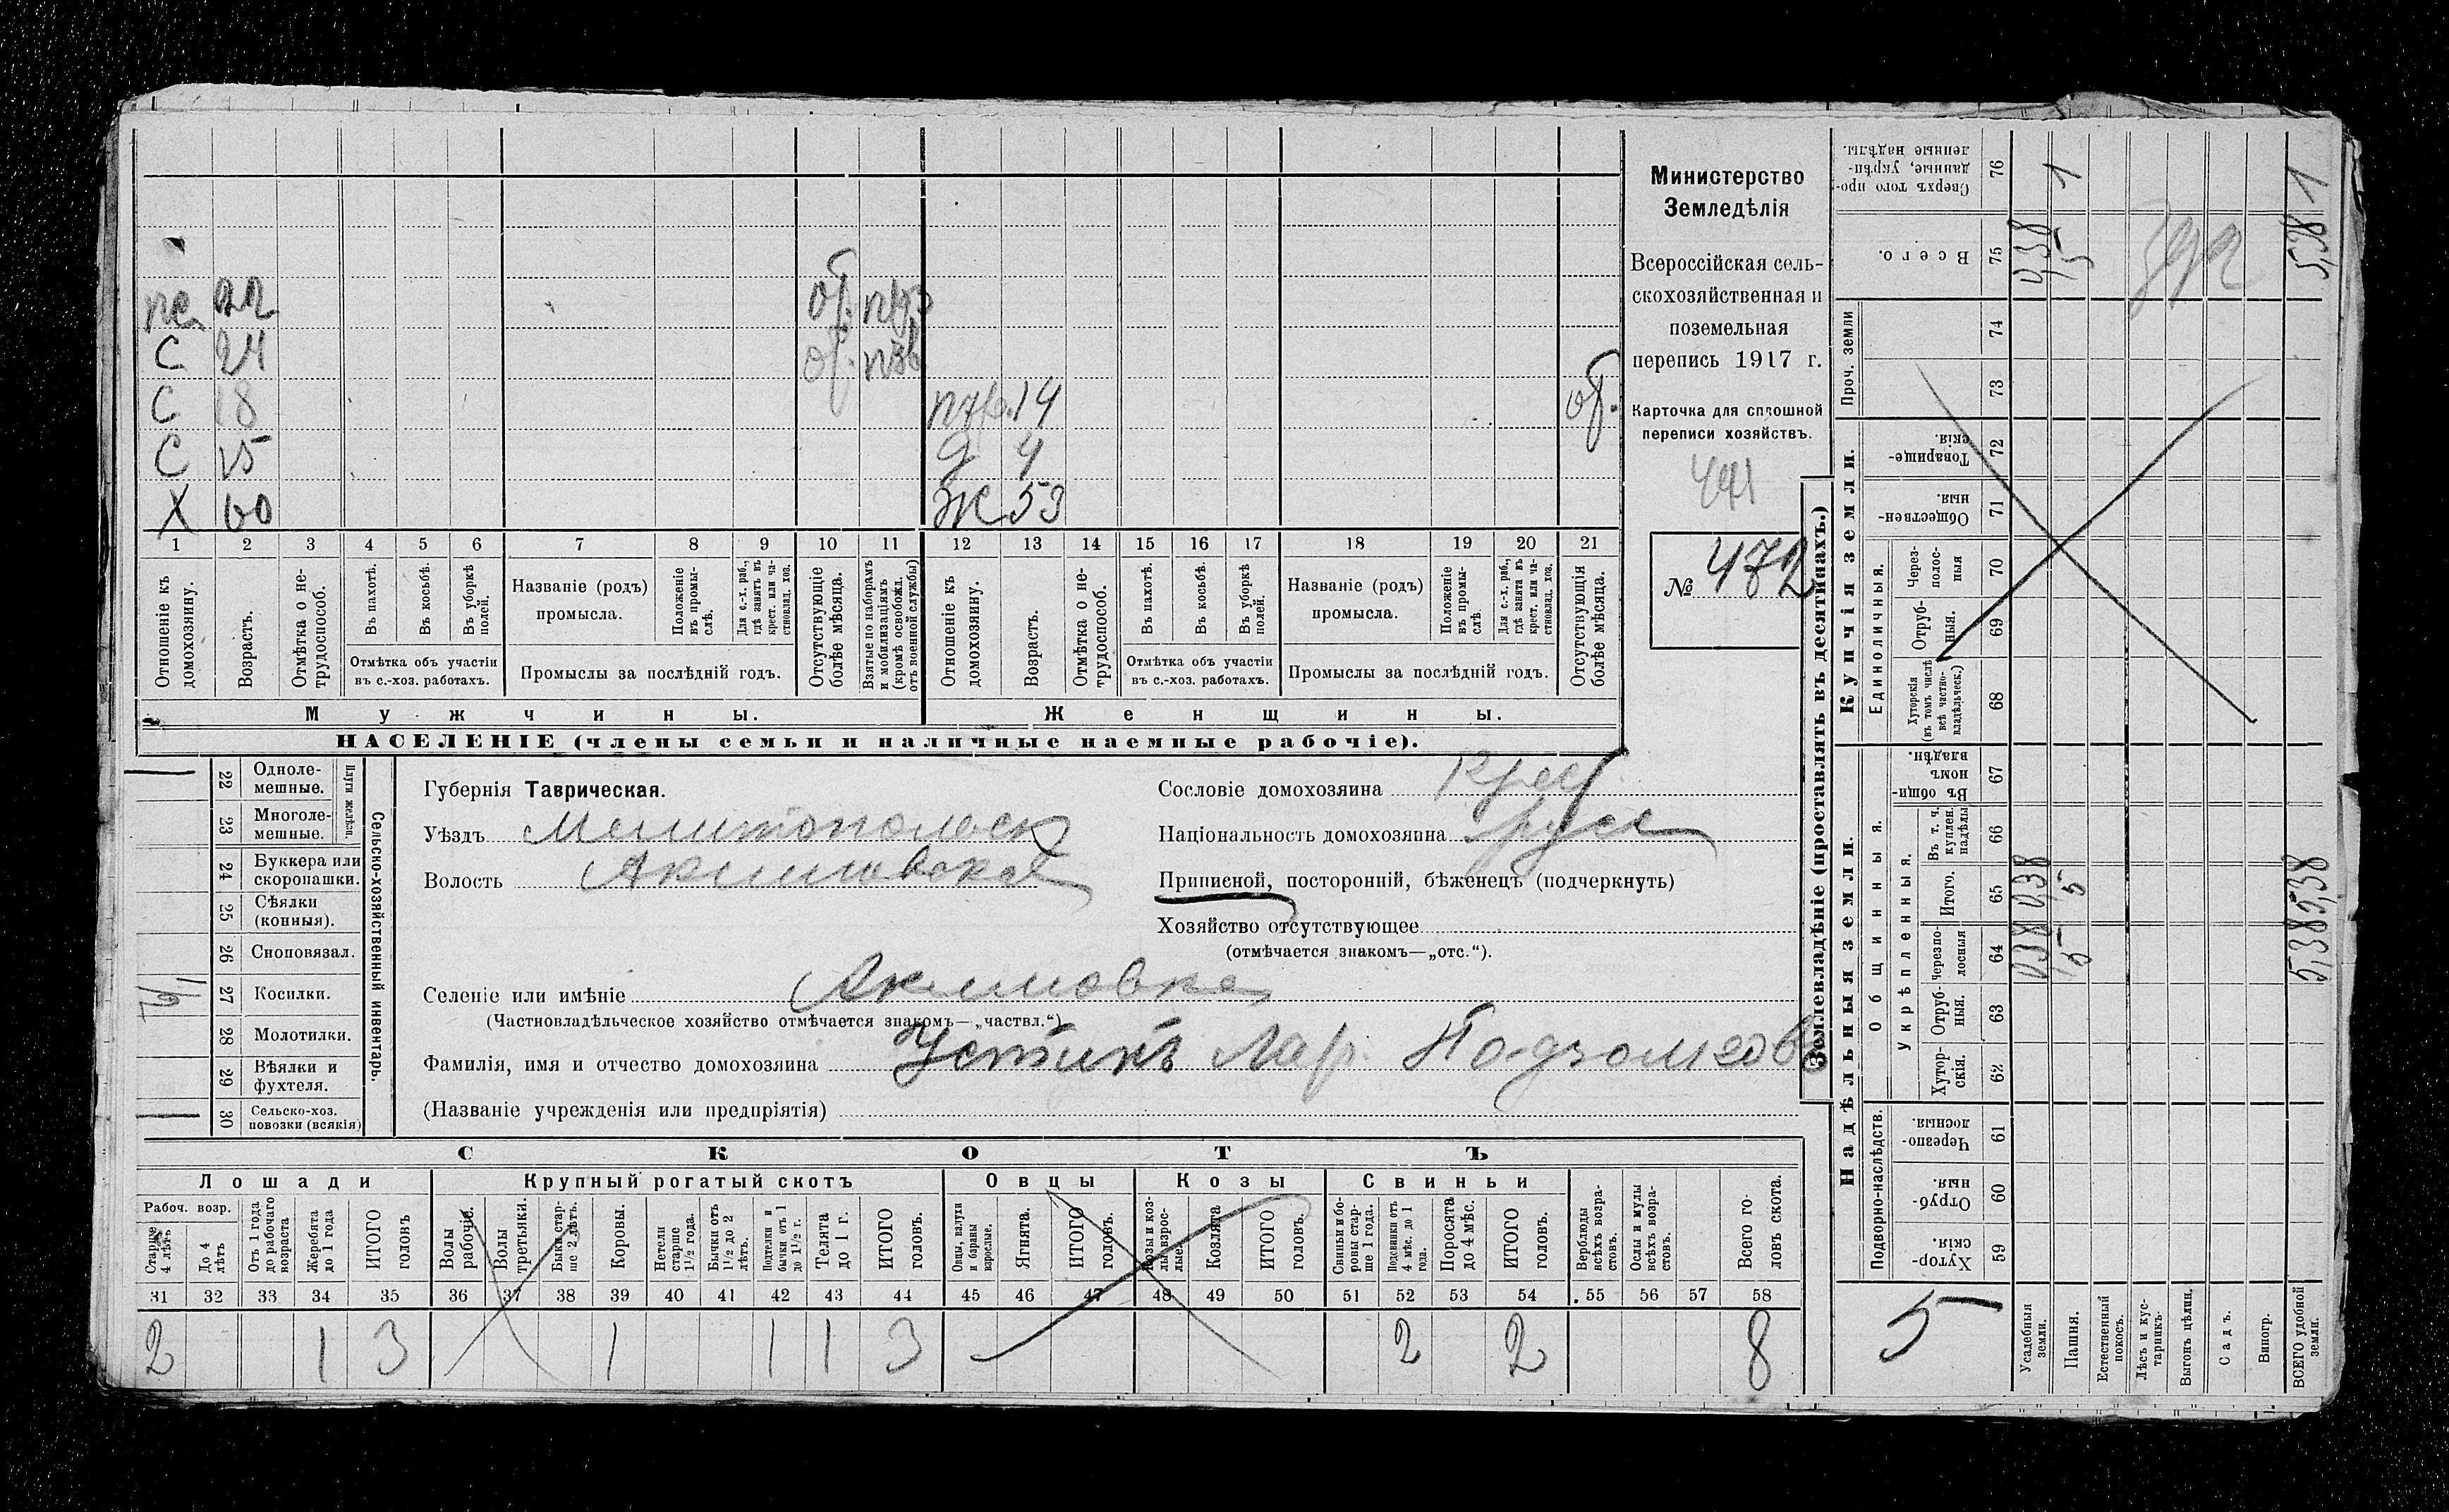 Министерство
Земледѣлія
Всероссійская сель-
скохозяйственная и
поземельная
перепись 1917 г.
Карточка для сплошной
переписи хозяйствъ.
441
№ 472
22 об.
С 24 об.
С 18 14 об.
С 15 д 4
Х 60 Ж 53
1 2 3 4 5 6 7 8 9 10 11 12 13 14 15 16 17 18 19 20 21
Отношеніе къ домохозяину.
Возрастъ.
Отмѣтка о не-трудоспособ.
Въ пахотѣ.
Въ косьбѣ.
Въ уборкѣ полей.
Отмѣтка объ участіи
въ с.-хоз. работахъ.
Названіе (родъ)
промысла.
Положеніе въ промы-слѣ.
Для с.-х. раб., гдѣ занятъ въ крест. или ча-стновлад. хоз.
Промыслы за послѣдній годъ.
Отсутствующіе болѣе мѣсяца.
Взятые по наборамъ и мобилизаціямъ (кромѣ освобожд. отъ военной службы)
Отношеніе къ домохозяину.
Возрастъ.
Отмѣтка о не-трудоспособ.
Въ пахотѣ.
Въ косьбѣ.
Въ уборкѣ полей.
Отмѣтка объ участіи
въ с.-хоз. работахъ.
Названіе (родъ)
промысла.
Положеніе въ промы-слѣ
Для с.-х. раб., гдѣ занята въ крест. или ча-стновлад. хоз.
Промыслы за послѣдній годъ.
Отсутствующія болѣе мѣсяца.
Мужчины.
Женщины.
НАСЕЛЕНІЕ (члены семьи и наличные наемные рабочіе).
Сельско-хозяйственный инвентарь.
Плуги желѣзн.
22 Одноле-мешные.
23 Многоле-мешные.
24 Буккера или скоропашки.
25 Сѣялки (конныя).
26 Сноповязал.
27 Косилки.
28 Молотилки.
29 Вѣялки и фухтеля.
30 Сельско-хоз. повозки (всякія)
Губернія Таврическая.
Уѣздъ Мелитопольск
Волость Акимовская
Сословіе домохозяина Крест
Національность домохозяина русск
Приписной, посторонній, бѣженецъ (подчеркнуть)
Хозяйство отсутствующее
(отмѣчается знакомъ—„отс.“).
Селеніе или имѣніе Акимовка
(Частновладѣльческое хозяйство отмѣчается знакомъ—„частвл.“)
Фамилія, имя и отчество домохозяина Устинъ Лар.
(Названіе учрежденія или предпріятія)
СКОТЪ
Лошади
Крупный рогатый скотъ
Овцы
Козы
Свиньи
Рабоч. возр.
Старше 4 лѣтъ
До 4 лѣтъ
Отъ 1 года до рабочаго возраста
Жеребята до 1 года
ИТОГО головъ
Волы рабочіе.
Волы третьяки.
Быки стар-ше 2 лѣтъ.
Коровы.
Нетели старше 1½ года.
Бычки отъ 1½ до 2 лѣтъ.
Подтелки и бычки отъ 1 до 1½ г.
Телята до 1 г.
ИТОГО головъ.
Овцы, валухи и бараны взрослые.
Ягнята.
ИТОГО головъ.
Козы и коз-лы взрос-лые.
Козлята
ИТОГО головъ.
Свиньи и бо-ровы стар-ше 1 года.
Подсвинки отъ 4 мѣс. до 1 года.
Поросята до 4 мѣс.
ИТОГО головъ.
Верблюды всѣхъ возра-стовъ.
Ослы и мулы всѣхъ возра-стовъ.
Всего го-ловъ скота.
31 32 33 34 35 36 37 38 39 40 41 42 43 44 45 46 47 48 49 50 51 52 53 54 55 56 57 58
2 1 3 1 1 1 3 2 2 8
Землевладѣніе (проставлять въ десятинахъ.)
Надѣльныя земли.
Купчія земли.
Проч. земли
Подворно-наслѣдств.
Общинныя.
Укрѣпленныя.
Единоличныя.
Сверхъ того про-данные, укрѣп-ленные надѣлы. 76 1 1
Всего. 75 0,38 5 5,38
74
73
Товарище-скія. 72
Обществен-ныя. 71
Через-полос-ныя 70
Отруб-ныя. 69
Хуторскія (въ томъ числѣ всѣ частно-владѣльческ.) 68
Въ общи-номъ владѣн. 67
Въ т. ч. куплен. надѣлы 66
Итого. 65 0,38 5 5,38
Черезпо-лосныя 64 0,38 5 5,38
Отруб-ныя. 63
Хутор-скія. 62
Черезпо-лосныя. 61
Отруб-ныя. 60
Хутор-скія. 59
5
Усадебныя земли.
Пашня.
Естественный покосъ.
Лѣсъ и кус-тарникъ.
Выгонъ цѣлин.
Садъ.
Виногр.
ВСЕГО удобной земли.